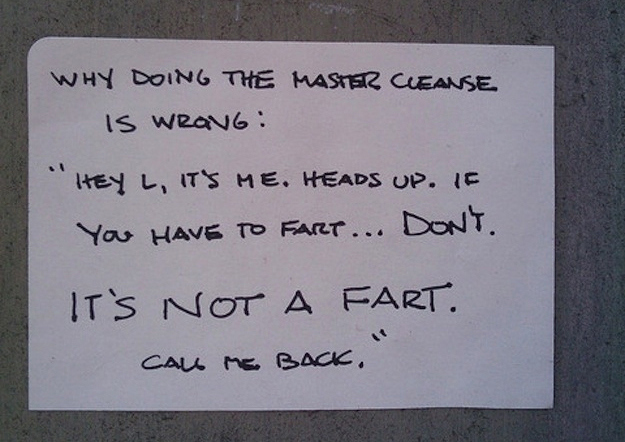 WHY DOING THE MASTER CLEANSE
IS WRONG:
"HEY L, IT'S ME. HEADS UP. IF
YOU HAVE TO FART... DON'T.
IT'S NOT A FART.
CALL ME BACK."